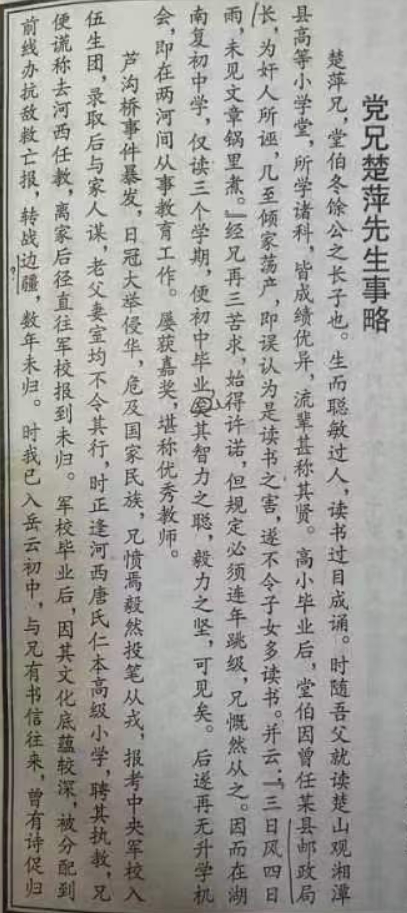 党兄楚萍先生事略
楚萍兄，堂伯冬馀公之长子也。生而聪敏过人，读书过目成诵。时随吾父就读楚山观湘潭
县高等小学堂，所学诸科，皆成绩优异，流辈甚称其贤。高小毕业后，堂伯因曾任某县邮政局
长，为奸人所诬，几至倾家荡产，即误认为是读书之害，遂不令子女多读书。并云：“三日风四日
雨，未见文章锅里煮。』经兄再三苦求，始得许诺，但规定必须连年跳级，兄慨然从之。因而在湖
南复初中学，仅读三个学期，便初中毕业矣其智力之聪，毅力之坚，可见矣。后遂再无升学机
会，即在两河间从事教育工作。屡获嘉奖，堪称优秀教师。
芦沟桥事件暴发，日冠大举侵华，危及国家民族，兄愤焉毅然投笔从戎，报考中央军校入
伍生团，录取后与家人谋，老父妻室均不令其行，时正逢河西唐氏仁本高级小学，聘其执教，兄
便谎称去河西任教，离家后径直往军校报到未归。军校毕业后，因其文化底蕴较深，被分配到
前线办抗敌救亡报，转战边疆，数年未归。时我已入岳云初中，与兄有书信往来，曾有诗促归